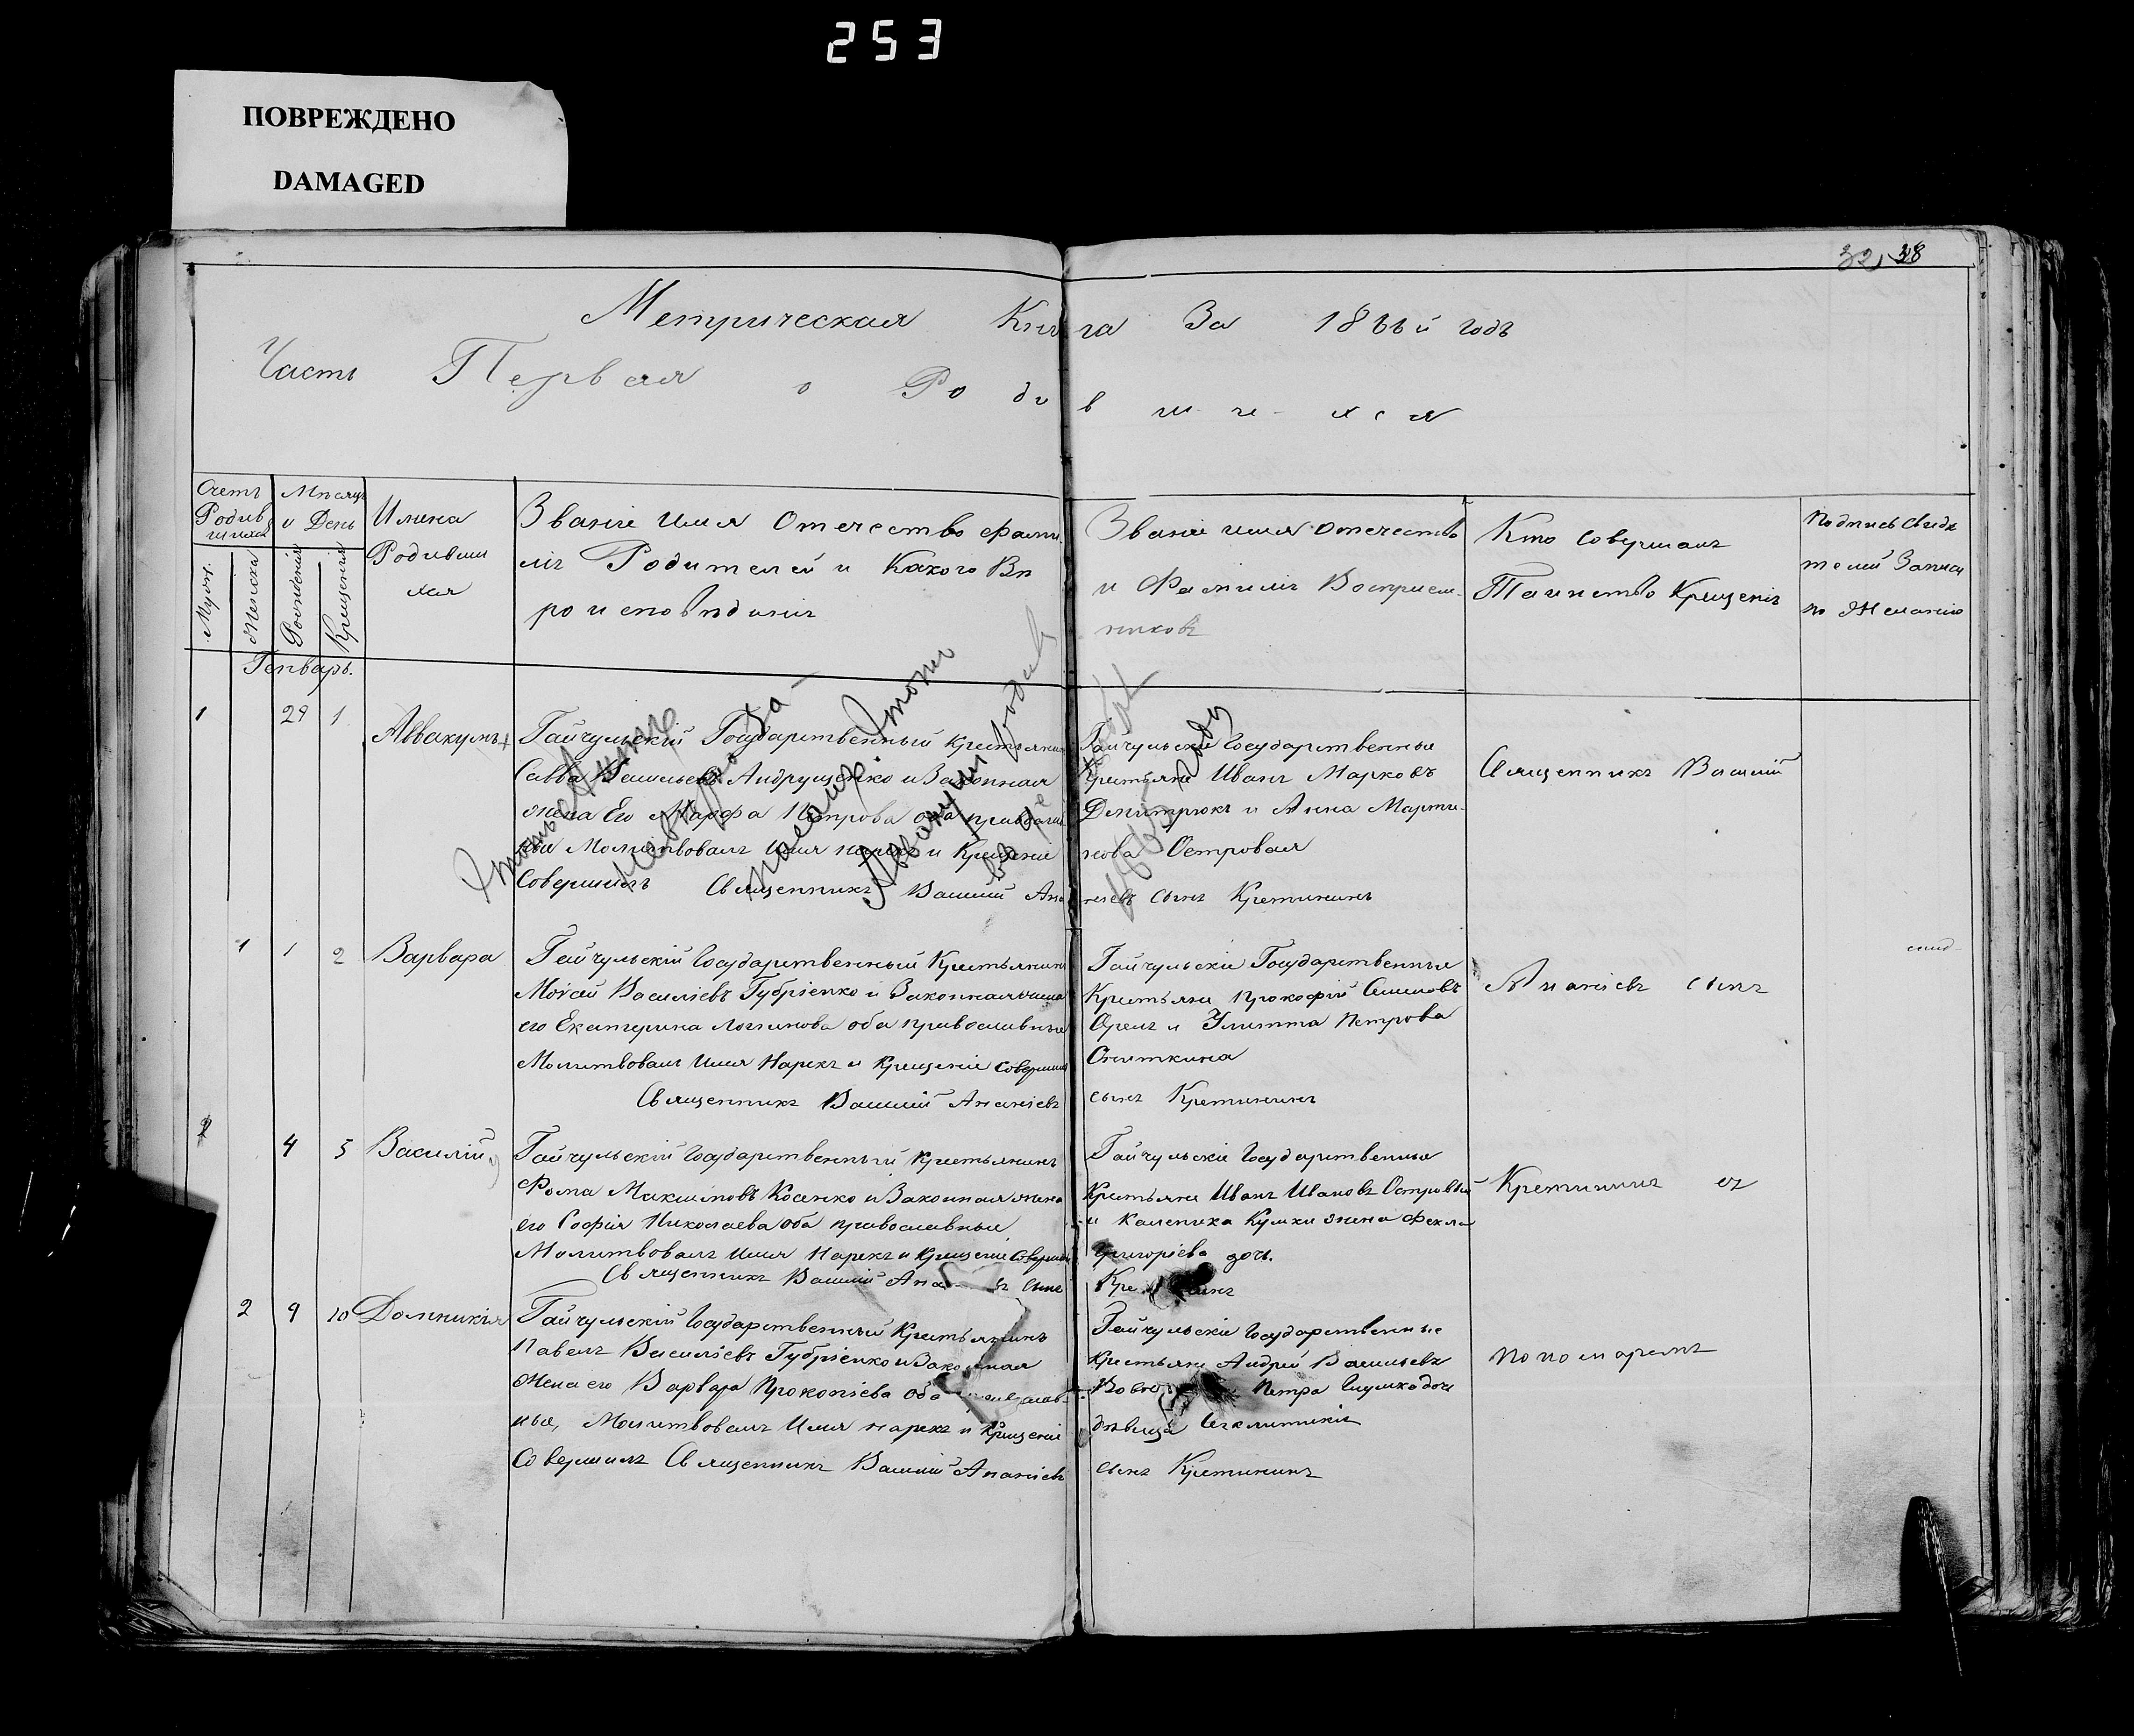 253
ПОВРЕЖДЕНО
DAMAGED
32, 38
Метрическая Книга За 1866й годъ
Часть Первая о Родившихся
Счетъ Родившихся
Мужск.
Женска
Мѣсяцъ и День
Рожденія
Крещенія
Имена Родившихся
Званіе Имя Отечество фами-
ліи Родителей и Какого Вѣ
роисповѣданія
Званіе имя отечество
и Фамилія Восприем-
никовъ
Кто Совершалъ
Таинство Крещенія
Подпись Свидѣ
телей Записи
по Желанію
Генварь.
1 29 1 Аввакумъ
Гайчульскій Государственный крестьянинъ
Савва Васильевъ Андрущенко и Законная
жена Его Марфа Петрова оба православ
ные Молитвовалъ Имя нарекъ и Крещеніе
Совершилъ Священникъ Василий Ананіевъ сынъ Кретининъ
Гайчульскіе Государственные
Крестьяне Иванъ Марковъ
Дмитрюкъ и Анна Марти-
нова Островая
Священникъ Василий
Аввакумъ
1 1 2 Варвара
Гайчульскій Государственный Крестьянинъ
Моѵсей Василіевъ Губріенко и Законная жена
его Екатерина Логинова оба православные
Молитвовалъ Имя Нарекъ и Крещеніе совершилъ
Священникъ Василий Ананіевъ сынъ Кретининъ
Гайчульскіе Государственные
Крестьяне Прокофій Семеновъ
Орелъ и Улитта Петрова
Сниткина
Ананіевъ сынъ
2 4 5 Василій
Гайчульскій Государственный Крестьянинъ
Фома Максимовъ Косенко и Законная жена
его Софія Николаева оба православные
Молитвовалъ Имя Нарекъ и Крещеніе Совершилъ
Священникъ Василий сынъ
Гайчульскіе Государственные
Крестьяне Иванъ Ивановъ Островый
и Каленика Кумки жена Фекла
Григоріева дочь.
Кретининъ съ
2 9 10 Домникія
Гайчульскій Государственный Крестьянинъ
Павелъ Василіевъ Губріенко и Законная
жена его Варвара Прокопіева оба православ-
ные, Молитвовалъ Имя нарекъ и Крещеніе
Совершилъ Священникъ Василий Ананіевъ сынъ Кретининъ
Гайчульскіе Государственные
крестьяне Андрей Васильевъ
Петра Глушко дочь
дѣвица
пономаремъ